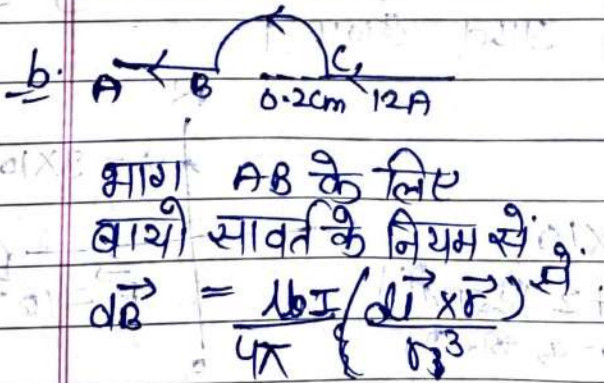 b.
A B C
0.2cm 12A
भाग AB के लिए
बायो सावर्त के नियम से
dB⃗ = μ₀I/4π {(dl⃗ × r⃗)/r³} से